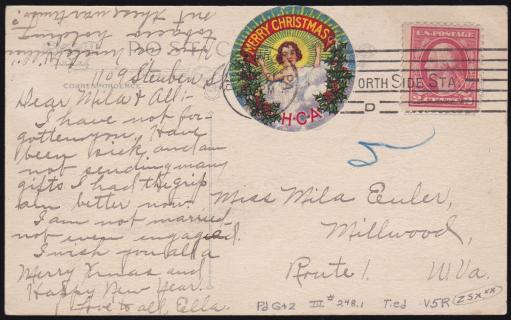 1109 Steuben St.
Dear Mila & All:-
I have not for-
gotten you. Have
been sick and am
not sending many
gifts. I had the grip
am better now.
I am not married
not even engaged.
I wish you all a
Merry Xmas and
Happy New Year.
Love to all, Ella.
POST
CORRESPONDENCE
MERRY CHRISTMAS
H·C·A
PA
NORTH SIDE STA.
D
U.S. POSTAGE
Miss Mila Euler,
Millwood,
Route 1. W.Va.
Pd G+2 III # 248.1 Tied V5R 25xxx